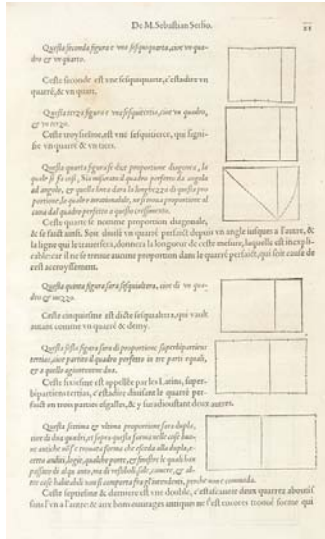 De M. Sebastian Serlio.
21
Questa seconda figura è una sesquiquarta, cioè un qua-
dro & un quarto.
Ceste seconde est vne sesquiquarte, c'estadire vn
quarré, & vn quart.
Questa terza figura è una sesquiterza, cioè un quadro,
& un terzo.
Ceste troysiesme, est vne sesquitierce, qui signi-
fie vn quarré & vn tiers.
Questa quarta figura se dice proportione diagonea, la
quale si fa così, Sia misurato il quadro perfetto da angulo
ad angulo, & questa linea dara la longhezza di questa pro-
portione, la quale è irrationabile, ne si trova proportione al
cuna dal quadro perfetto a questo crescimento.
Ceste quarte se nomme proportion diagonale,
& se faict ainsi. Soit diuisé vn quarré perfaict depuis vn angle iusques a l'autre, &
la ligne qui le trauersera, donnera la longueur de ceste mesure, laquelle est inexpli-
cable: car il ne se treuue aucune proportion dans le quarré perfaict, qui soit cause de
cest accroyssement.
Questa quinta figura sara sesquialtera, cioè di un qua-
dro & mezzo.
Ceste cinquiesme est dicte sesquialtera, qui vault
autant comme vn quarré & demy.
Questa sesta figura sara di proportione superbipartiens
tertias, cioè partito il quadro perfetto in tre parti equali,
& a quelle aggiontone due.
Ceste sixiesme est appellée par les Latins, super-
bipartiens tertias, c'estadire diuisant le quarré per-
faict en trois parties esgalles, & y suradioustant deux autres.
Questa settima & ultima proportione sara dupla,
cioè di dua quadri, et sopra questa forma nelle cose buo-
ne antiche mai se è trovata forma che exceda alla dupla, e-
cetto anditi, logie, qualche porte, & fenestre le quali han
passato di alquanto, ma di vestiboli, sale, camere, & al-
tre case habitabile non si comporta fra gl'intendenti, perche non è commoda.
Ceste septiesme & derniere est vne double, c'est asçauoir deux quarrez aboutiſ
sans l'vn a l'autre: & aux bons ouurages antiques ne s'est encores trouué forme qui